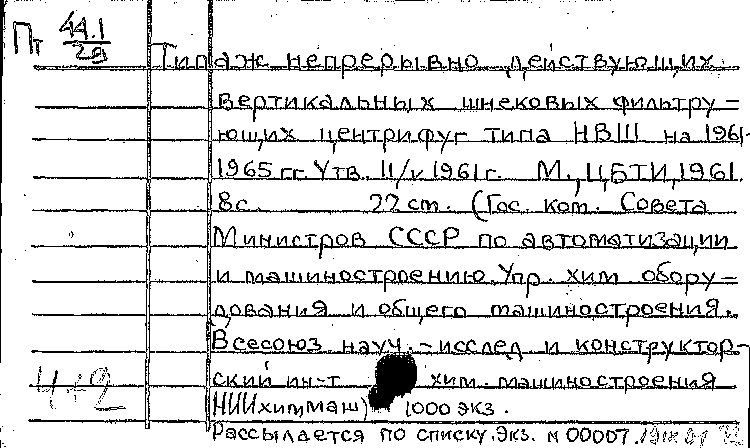 Пт 44.1/29
Типаж непрерывно действующих
вертикальных шнековых фильтру-
ющих центрифуг типа НВШ на 1961-
1965 гг. Утв. 11/v 1961 г. М., ЦБТИ, 1961.
8с. 22 см. (Гос. ком. Совета
Министров СССР по автоматизации
и машиностроению. Упр. хим обору-
дования и общего машиностроения.
Всесоюз науч.-исслед и конструктор-
ский ин-т хим. машиностроения
НИИхиммаш) 1000 экз.
4+2
Рассылается по списку. Экз. N 00007.